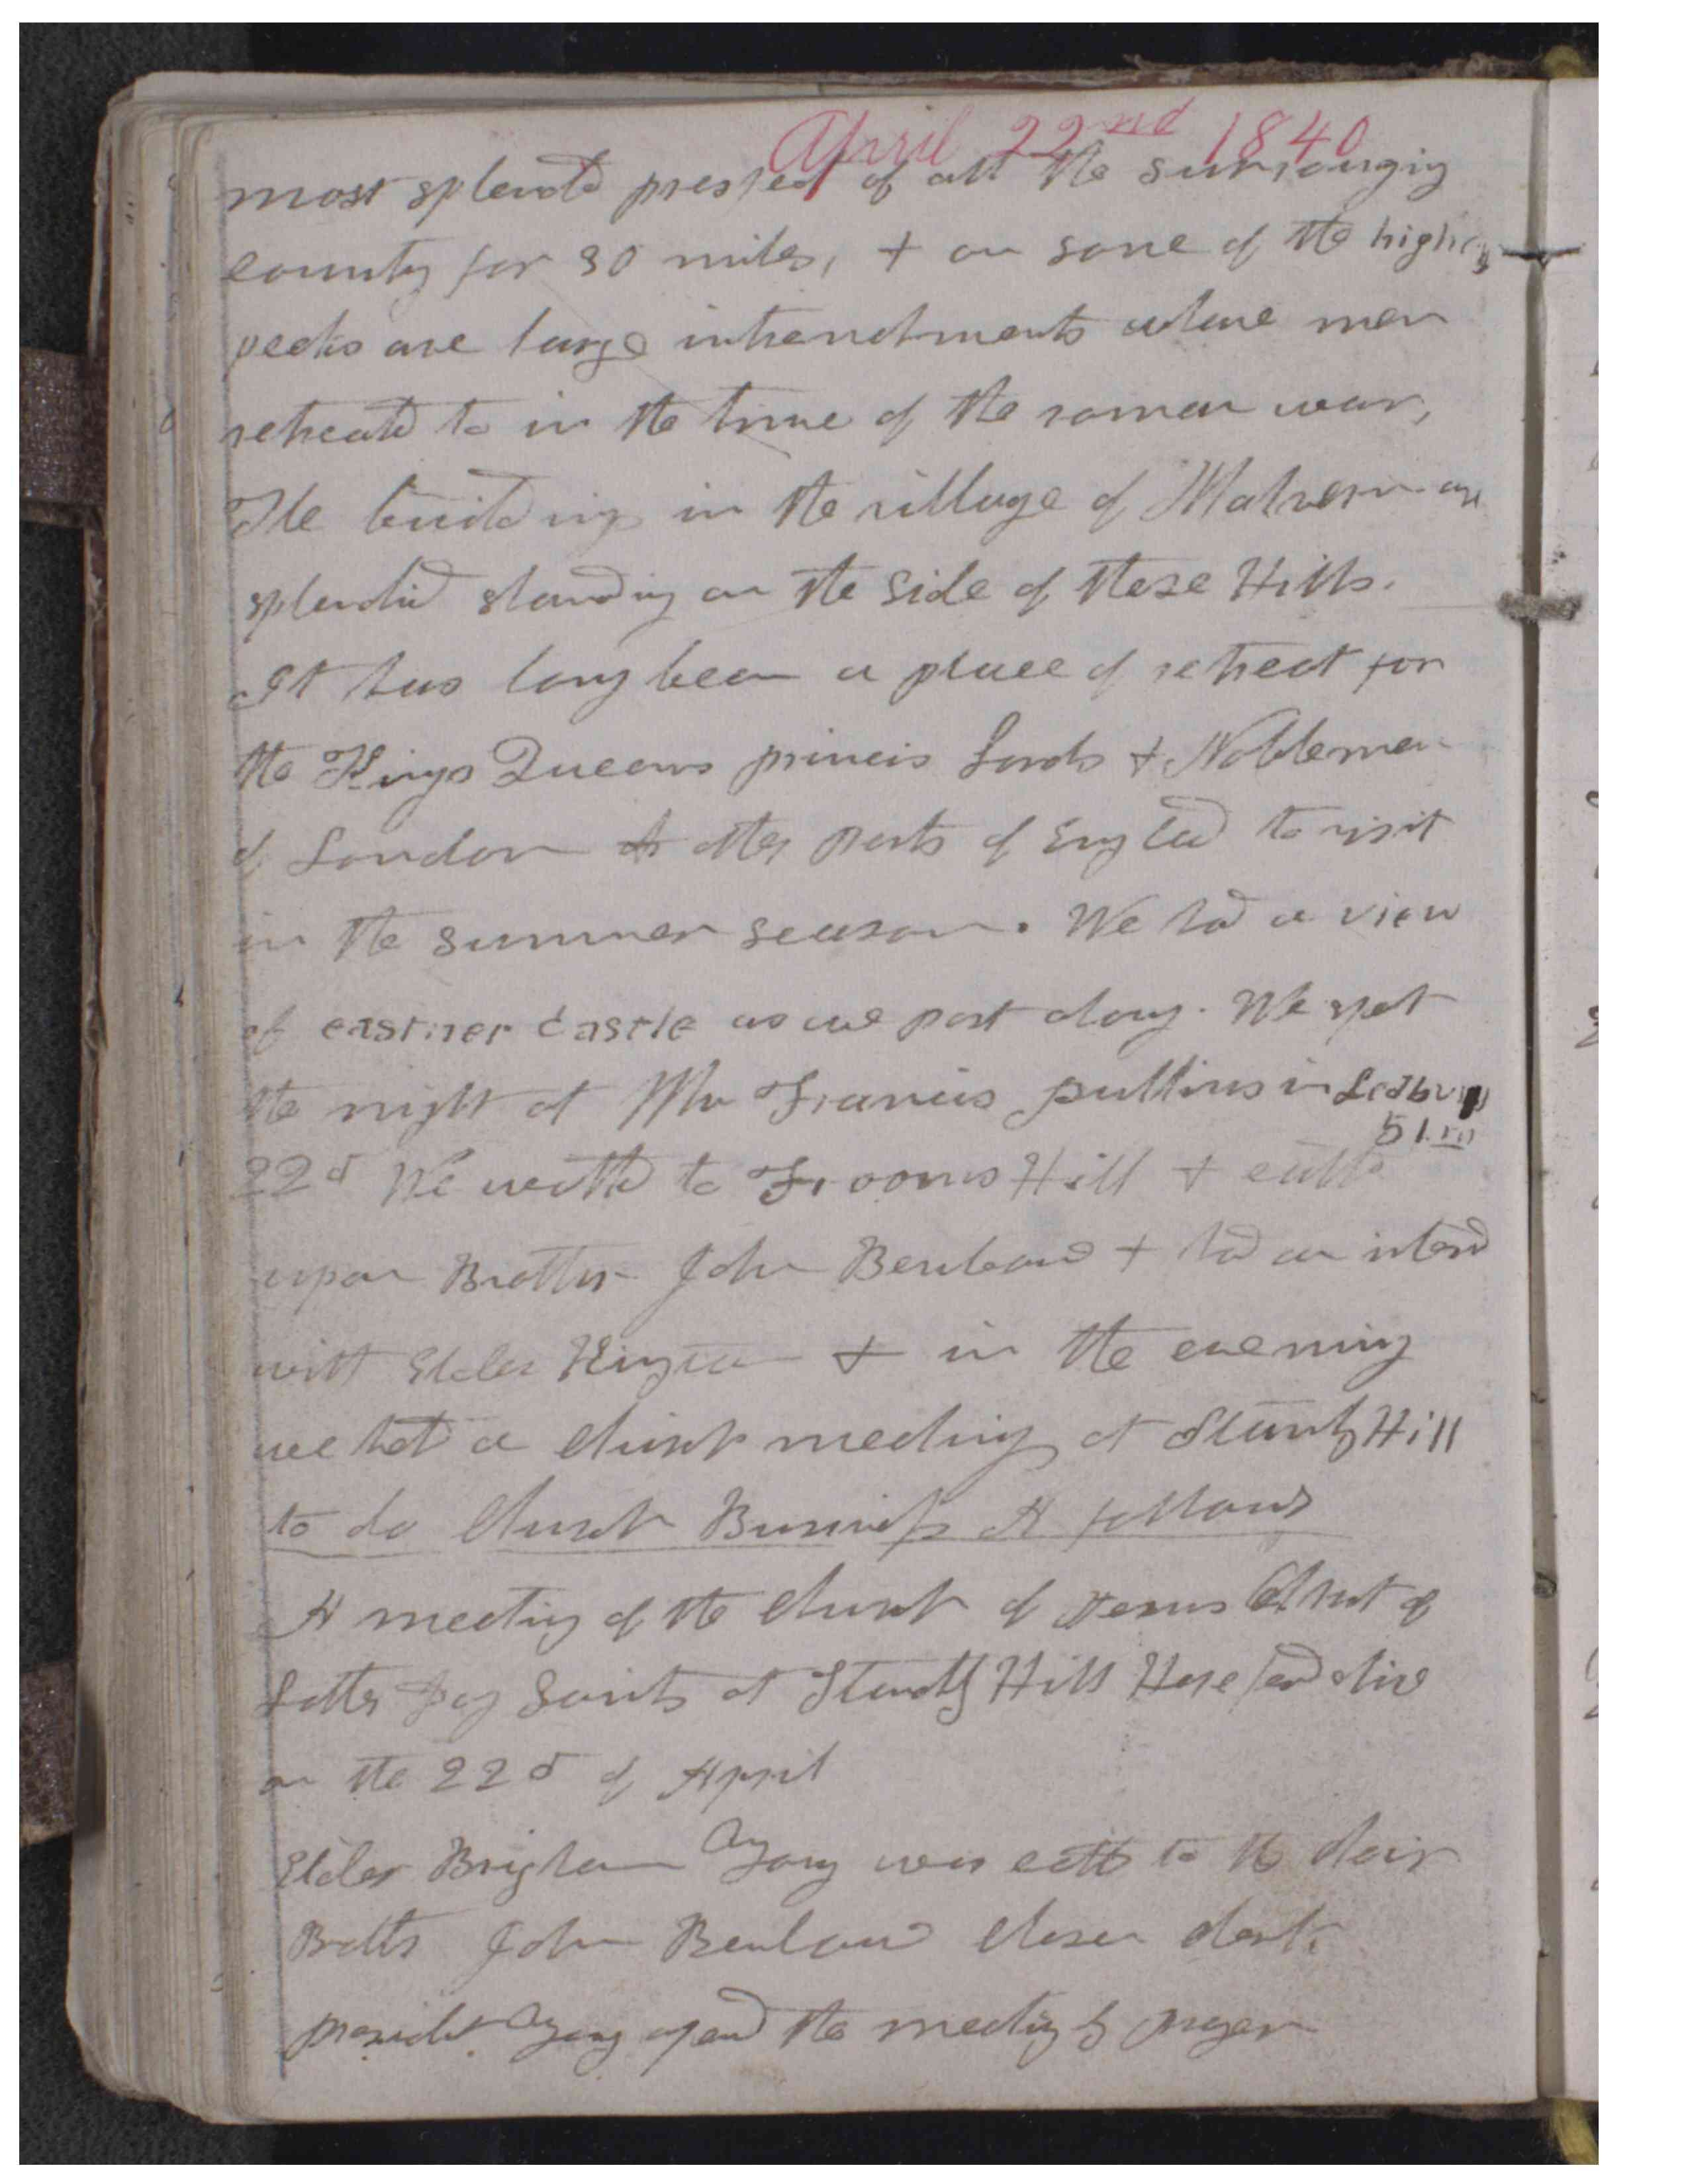 April 22nd 1840
most splendid prospect of all the surrounging
county for 30 miles, & on some of the highes
peeks are large intrenchments whare men
retreated to in the time of the roman war,
The building in the village of Malvern are
splendid standing on the side of these Hills.
It has long been a place of retreat for
the Kings Queens princis Lords & Noblemen
of London & other parts of England to visit
in the summer season. We had a view
of eastner castle as we past along. We spet
the night at Mr Francis pullins in Ledbury
51.m
22d We walked to Frooms Hill & called
upon Brother John Benbow & had an interv
with Elder Kington & in the evening
we held a church meeting at Stanly Hill
to do Church Business A follows
A meeting of the Church of Jesus Christ of
Latter Day Saints at Stanly Hill Herefordshire
on the 22d of April
Elder Brigham Young was called to the chair
Brother John Benbow chosen clerk.
president Young opend the meeting by prayer